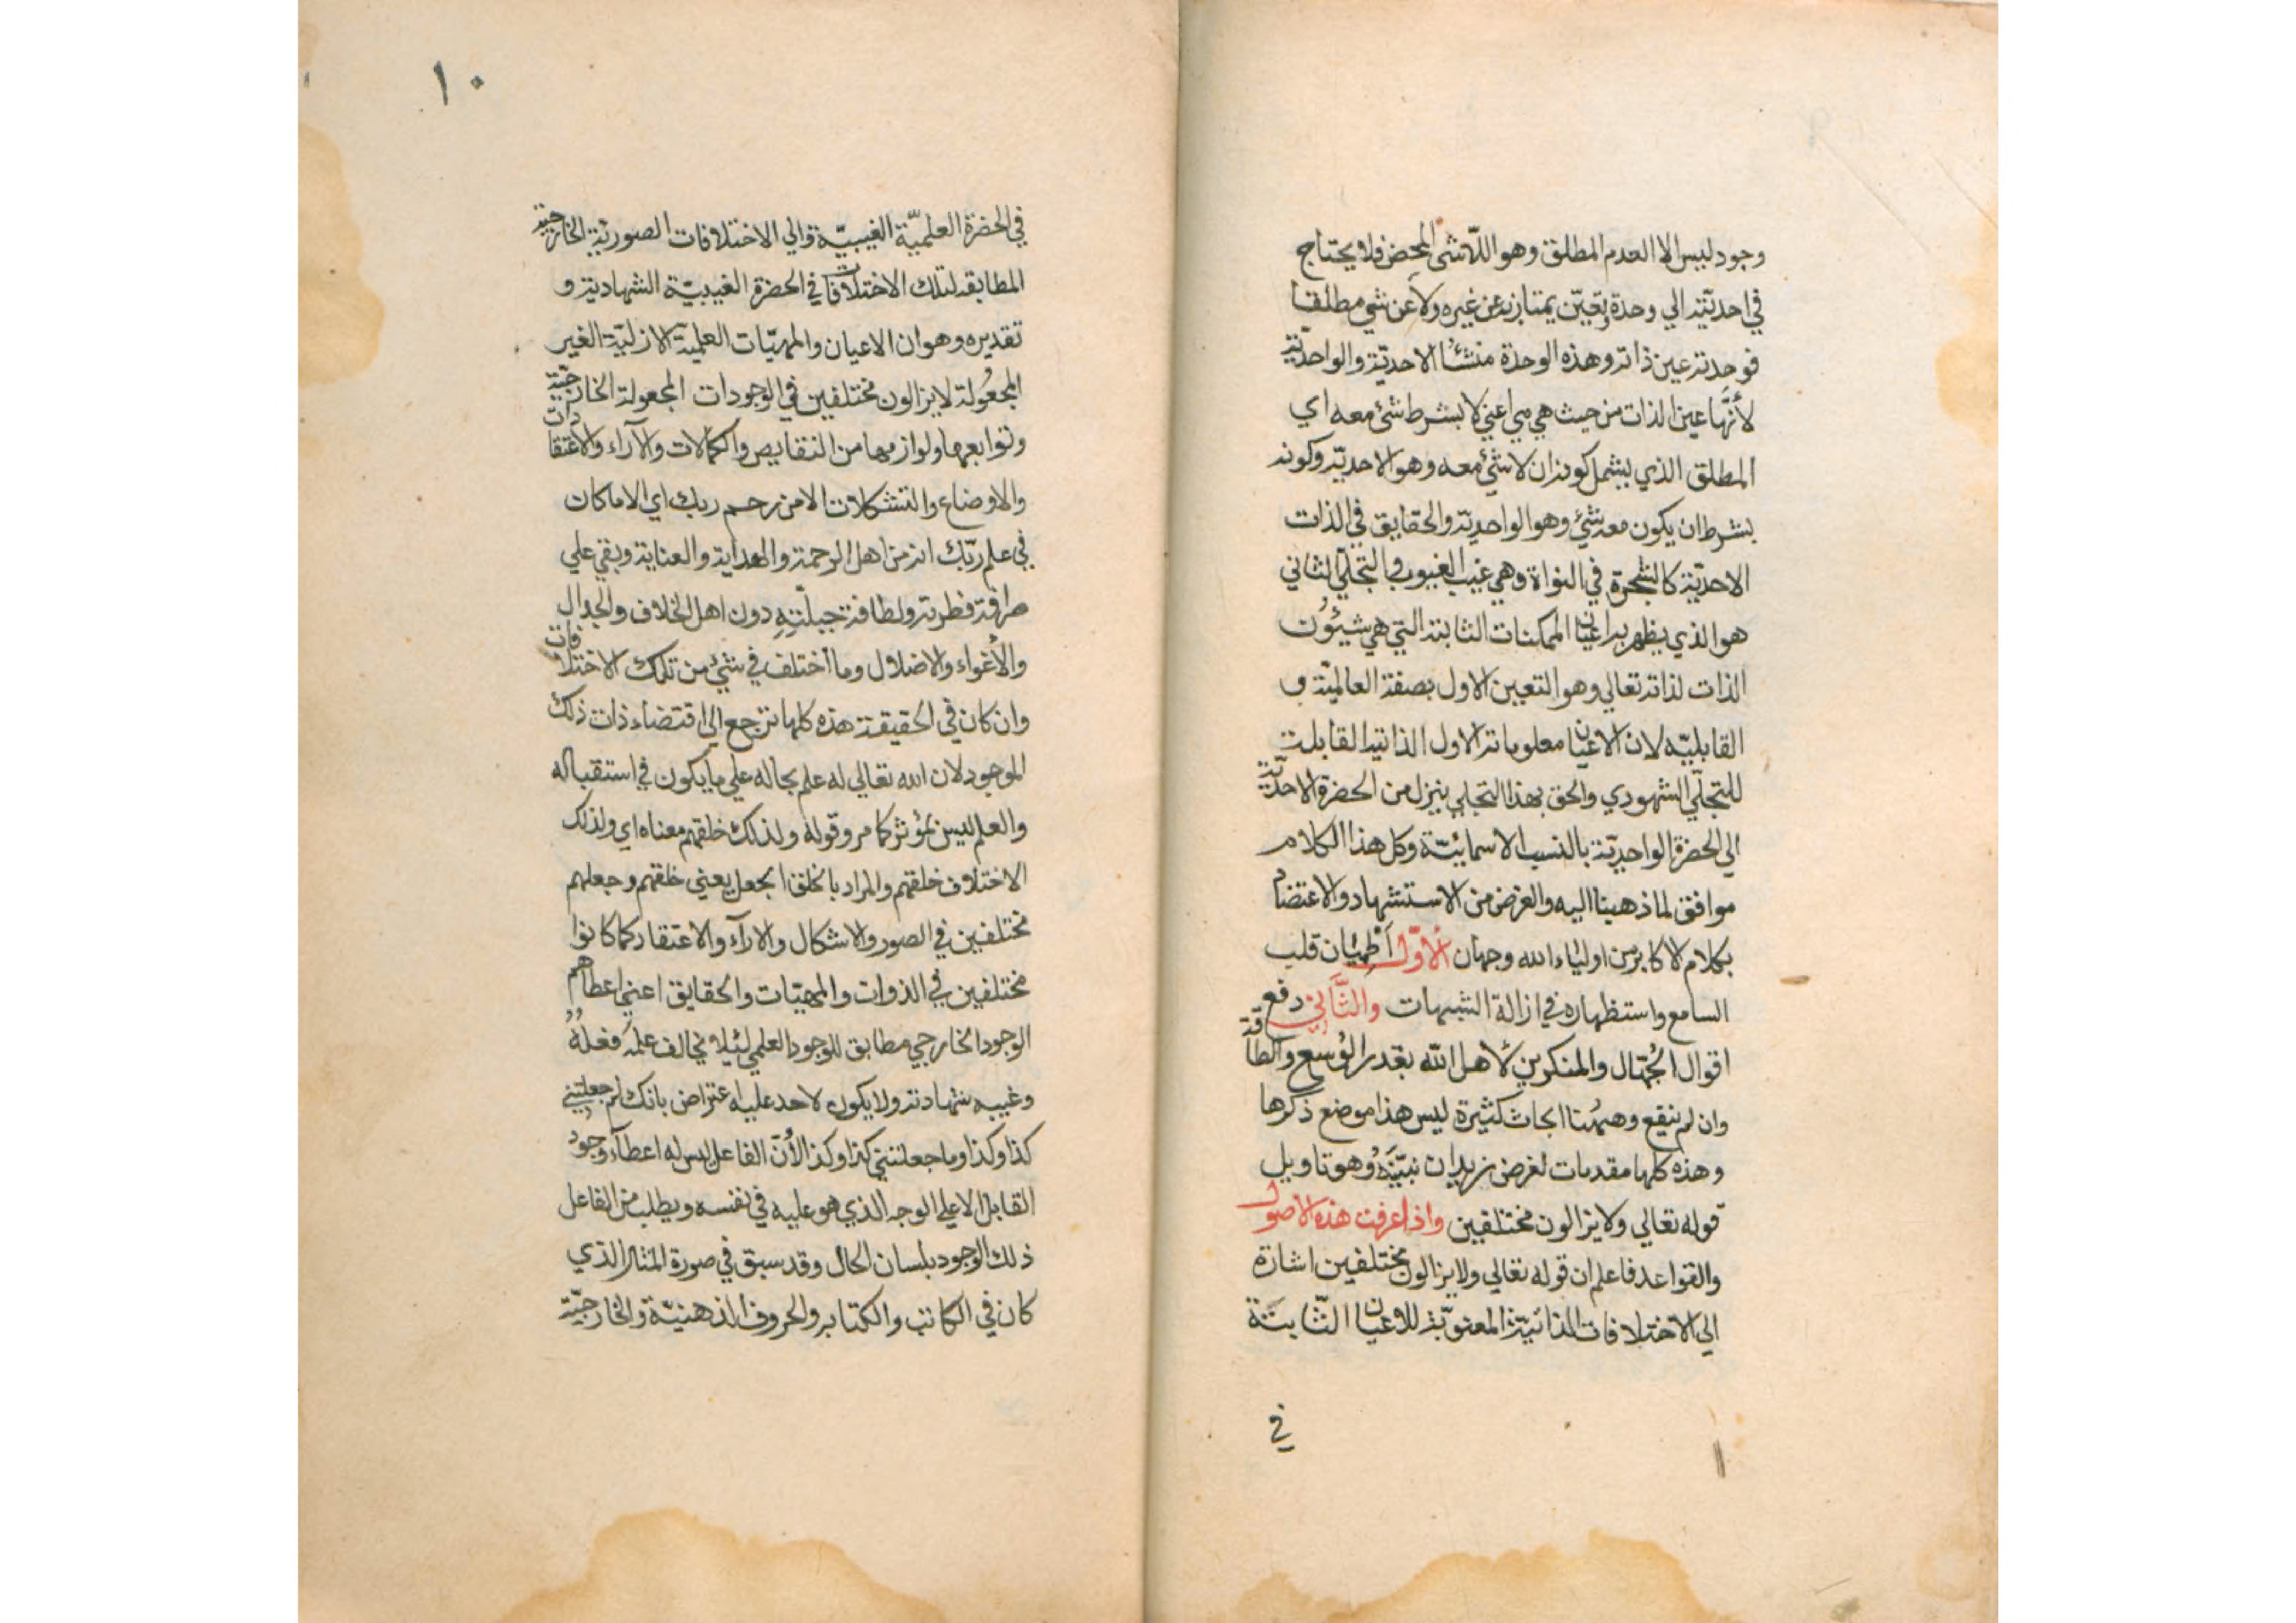 وجود ليس الا العدم المطلق وهو اللّاشى المحض فلا يحتاج
في احديّته الي وحدة وتعيّن يمتاز به عن غيره ولا عن شي مطلقا
فوحدته عين ذاته وهذه الوحدة منشئا الاحديّة والواحديّة
لأنّها عين الذات من حيث هي هي اعني لا بشرط شئ معه اي
المطلق الذي يشمل كونه ان لا شئ معه وهو الاحديّة وكونه
بشرط ان يكون معه شئ وهو الواحدية والحقايق في الذات
الاحديّة كالشجرة في النواة وهي غيب الغيوب والتجلّي الثاني
هو الذي يظهر به اعيان الممكنات الثابتة التي هي شيئون
الذات لذاته تعالي وهو التعين الاول بصفة العالميّة و
القابليّه لان الاعيان معلوماته الاول الذاتية القابلة
للتجلّي الشهودي والحق بهذا التجلي ينزل من الحضرة الاحديّة
الي الحضرة الواحديّة بالنسب الاسمائيّة وكل هذا الكلام
موافق لما ذهبنا اليه والغرض من الاستشهاد والاعتضام
بكلام الاكابر من اولياء الله وجهان الاوّل اطميان قلب
السامع واستظهاره في ازالة الشبهات والثّاني دفع
اقوال الجُهّال والمنكرين لأهل الله بقدر الوُسع والطاقة
وان لم ينقع وههُنا ابحاث كثيرة ليس هذا موضع ذكرها
وهذه كلها مقدمات لغرض نريد ان نبيّنه وهو تاويل
قوله تعالي ولا يزالون مختلفين واذا عرفت هذه الاصول
والقواعد فاعلم ان قوله تعالي ولا يزالون مختلفين اشارة
الي الاختلافات الذاتيّة المعنويّة للاعيان الثّابتة
في
١٠
في الحضرة العلميّة الغيبيّة والي الاختلافات الصوريّة الخارجيّة
المطابقه لتلك الاختلافات في الحضرة الغيبيّة الشهاديّة و
تقديره وهو ان الاعيان والمهيّات العلميّة الازليّة الغير
المجعُولة لا يزالون مختلفين في الوجودات المجعولة الخارجيّة
وتوابعها ولوازمها من النقايص والكمالات والآراء والاعتقادات
والاوضاع والتشكلات الا من رحم ربك اي الا ما كان
في علم ربّك انه من اهل الرحمة والهداية والعناية وبقي علي
صرافة فطرته ولطافة جبلّتِهِ دون اهل الخلاف والجدال
والأغواء والاضلال وما أختلف في شئ من تلك الاختلافات
وان كان في الحقيقة هذه كلها ترجع الي اقتضاء ذات ذلك
الموجود لان الله تعالي له علم بحاله علي ما يكون في استقباله
والعلم ليس بمؤثر كما مر وقوله ولذلك خلقهم معناه اي ولذلك
الاختلاف خلقهم والمراد بالخلق الجعل يعني خلقهم وجعلهم
مختلفين في الصور والاشكال والارآء والاعتقاد كما كانوا
مختلفين في الذوات والمهيّات والحقايق اعني اعطاهم
الوجود الخارجي مطابق للوجود العلمي لئيلا يخالف علمَه فعلُهُ
وغيبه شهادته ولا يكون لاحد عليه اعتراض بانك لم جعلتني
كذا وكذا وما جعلتني كذا وكذا لأنّ الفاعل ليس له اعطآء وجود
القابل الا علي الوجه الذي هو عليه في نفسه ويطلب من الفاعل
ذلك الوجود بلسان الحال وقد سبق في صورة المثال الذي
كان في الكاتب والكتابه والحروف الذهنيّة والخارجيّة